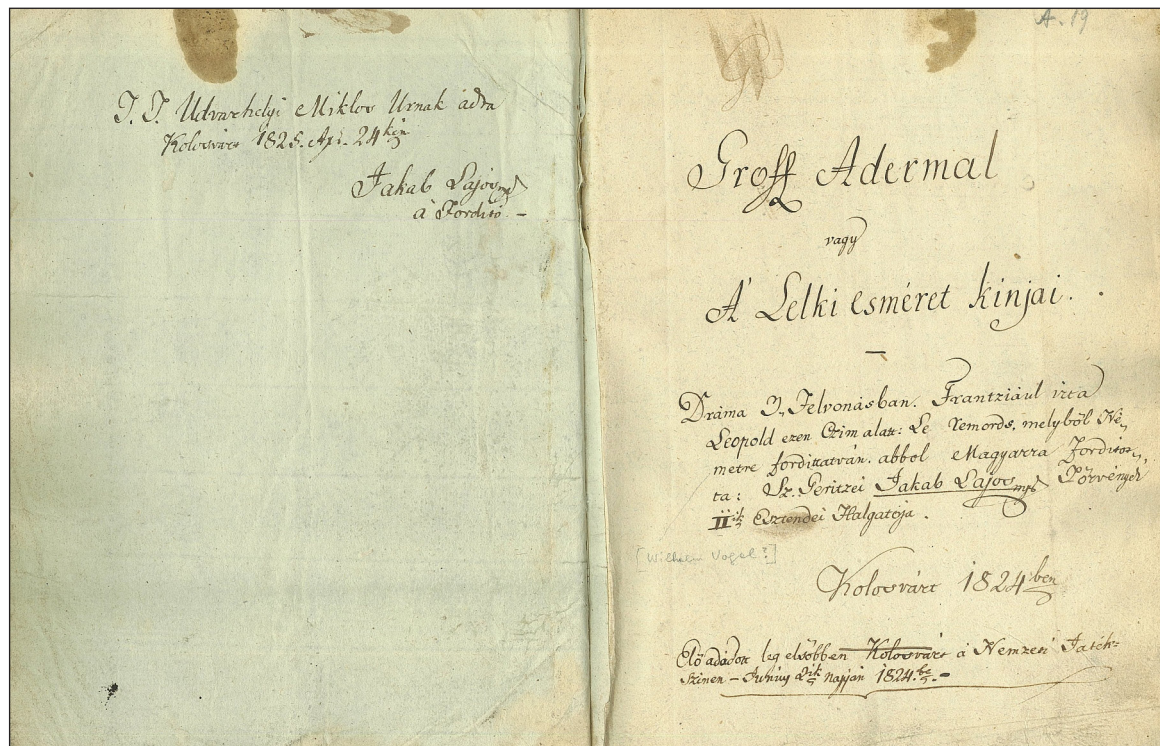 T. T. Udvarhelyi Miklos Urnak adta
Kolosvárt 1825. Apr. 24kén
Jakab Lajos mpr
a' Fordító. -
A. 19
Groff Adermal
vagy
A' Lelki esméret kinjai.
Dráma 3. Felvonásban. Frantziául irta
Leopold ezen Czim alatt: Le Remords, melyből Né„
metre fordittatván, abbol Magyarra fordított„
ta: Sz. Geritzei Jakab Lajos mpr Törvények
IIik Esztendei Halgatója.
[Wilhelm Vogel?]
Kolosvárt 1824ben
Elő adádott leg elsőbben Kolosvárt a Nemzeti Játék-
Szinen - Junius 2ik napján 1824.be -